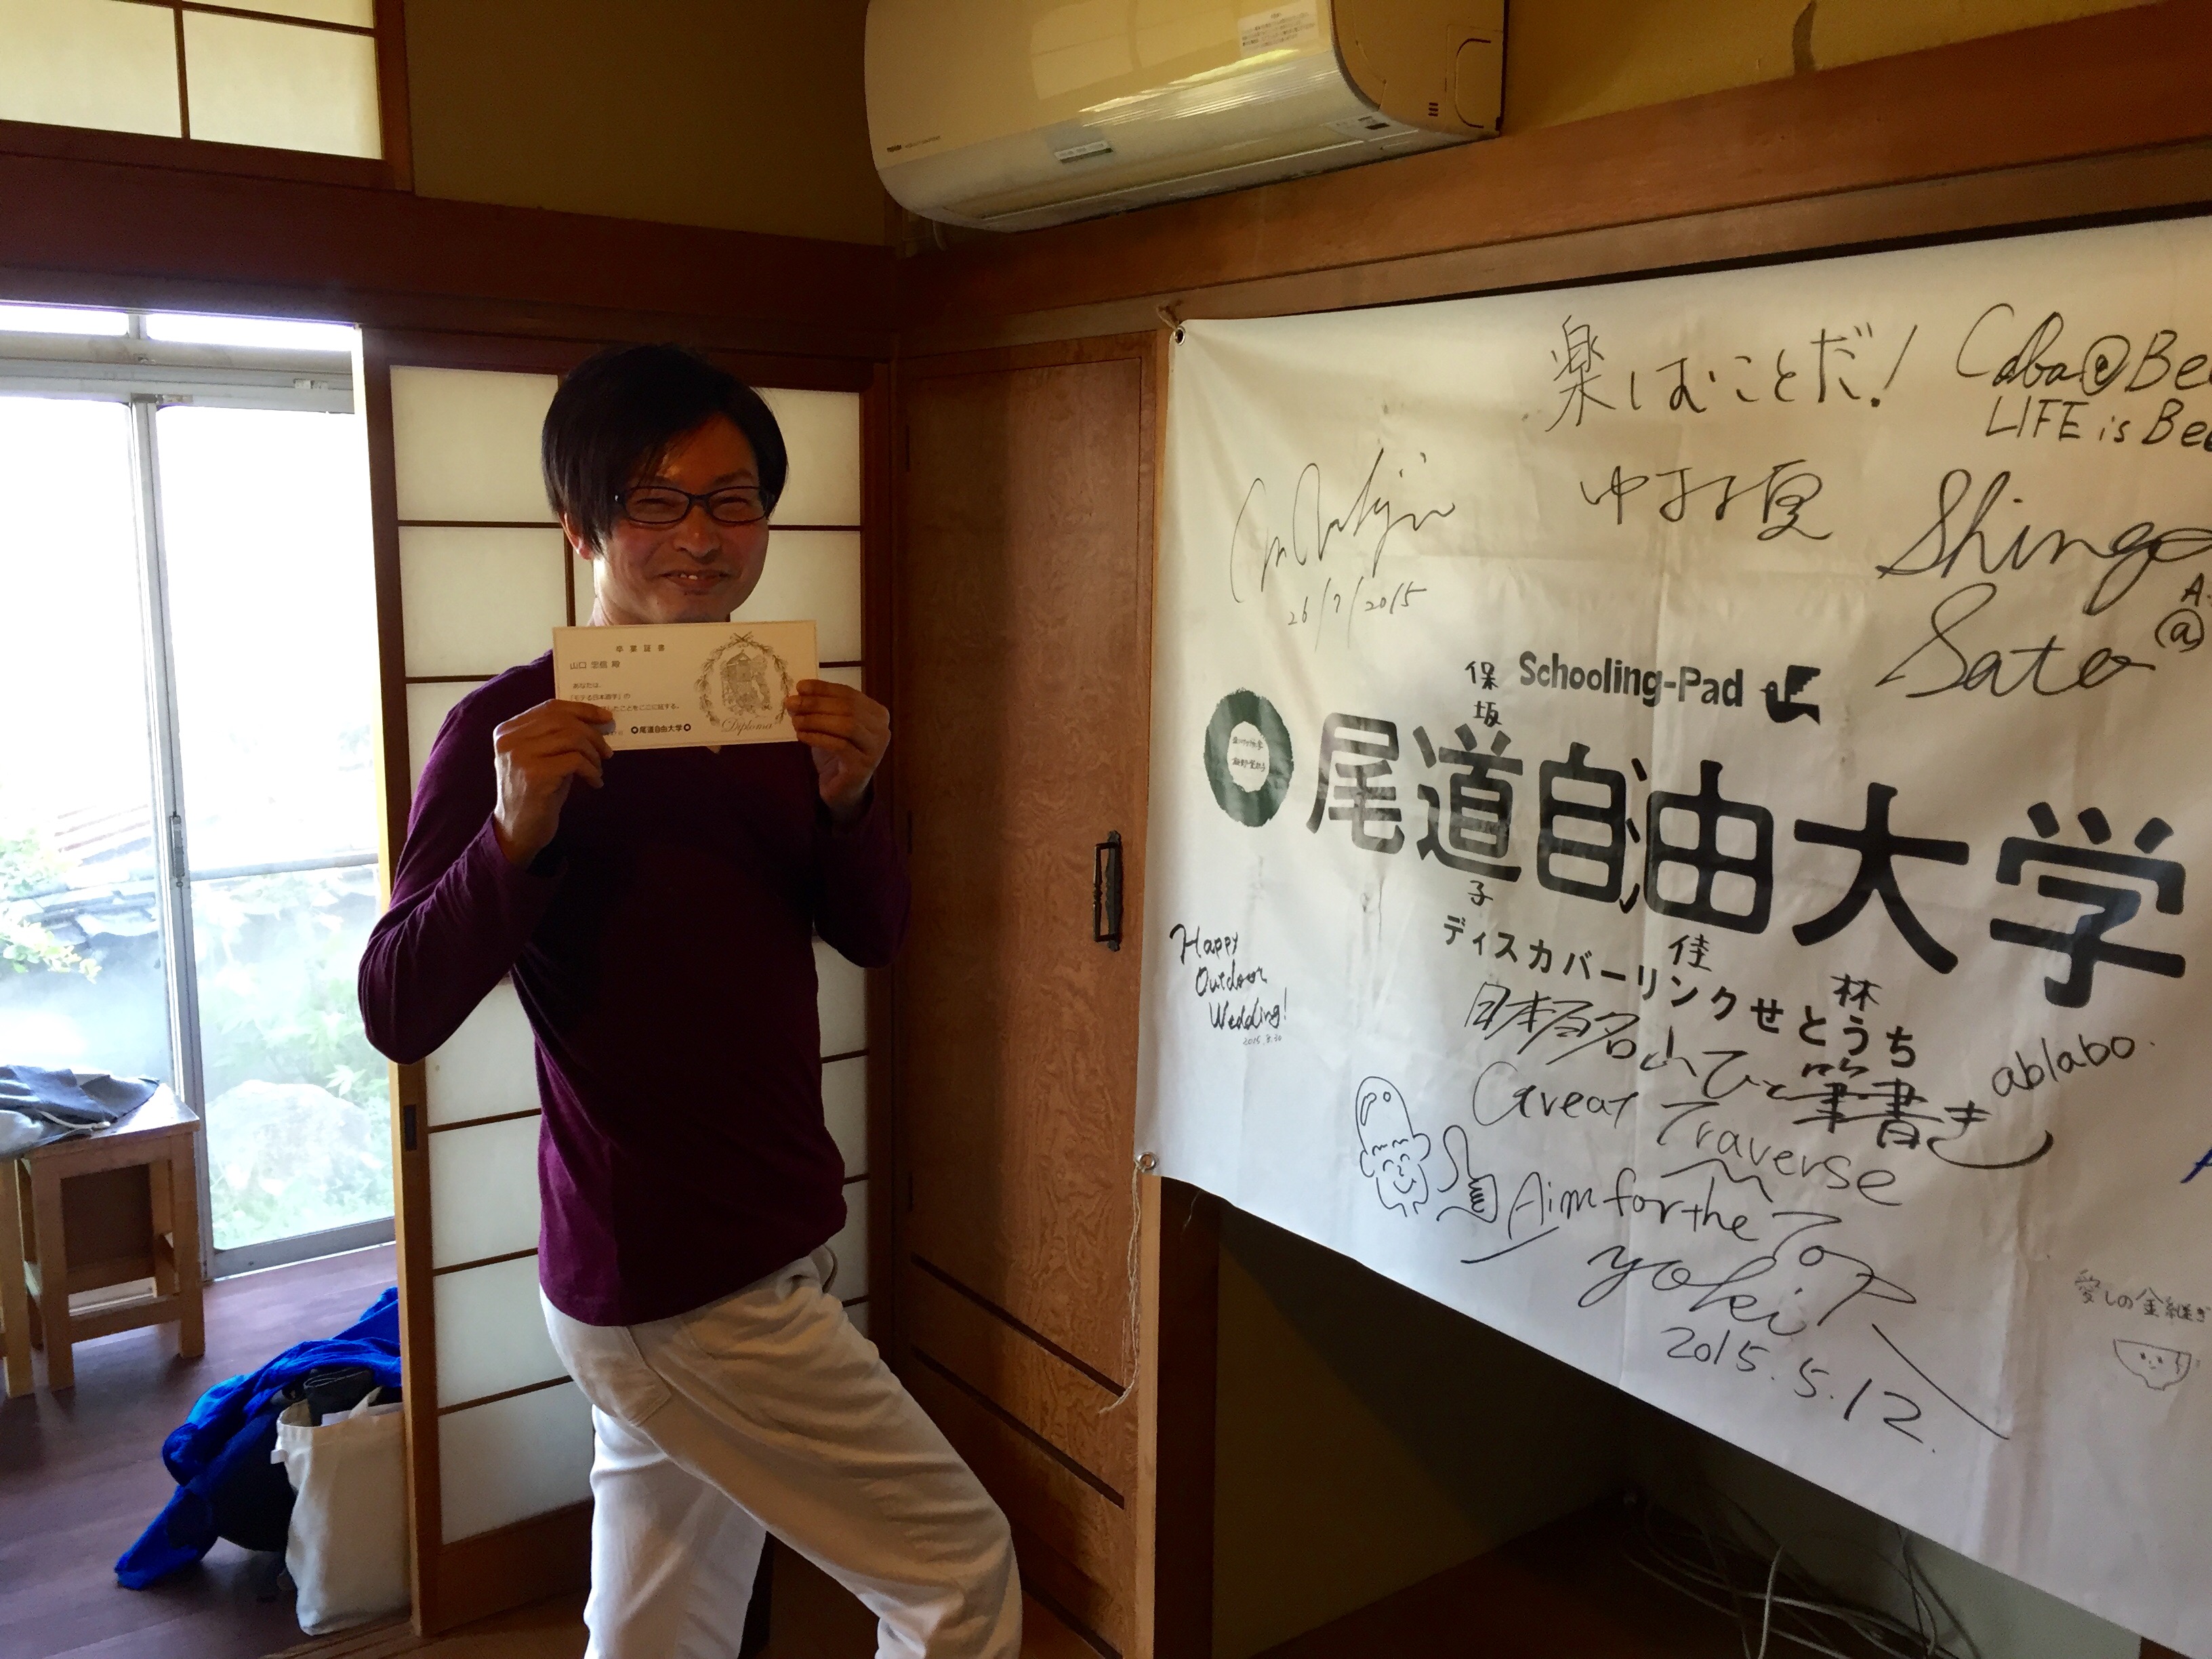 卒業証書
山口
殿
あなたは、
したことをここに証する。
尾道自由大学
Diploma
楽しむことだ！
LIFE is
26/7/2015
Shingo
Sato
@
Schooling-Pad
保坂
尾道自由大学
子
ディスカバーリンクせとうち
佳
林
Happy
Outdoor
Wedding!
2015.8.30
日本百名山ひと筆書き
ablabo.
Great Traverse
Aim for the Top
yoki
2015.5.12.
愛しの金継ぎ